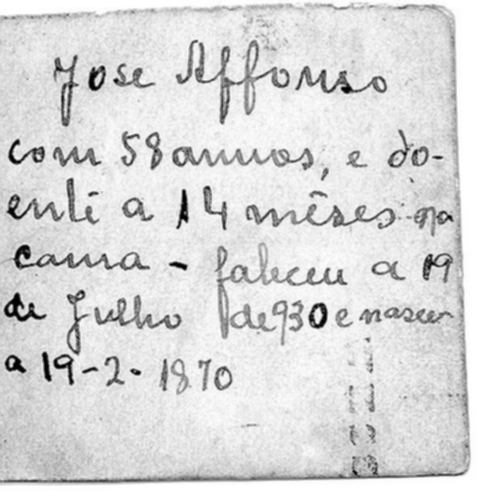 Jose Affonso
com 58 annos, e do-
enti a 14 mêses na
cama - faleceu a 19
de Julho de 930 e nasceu
a 19-2-1870